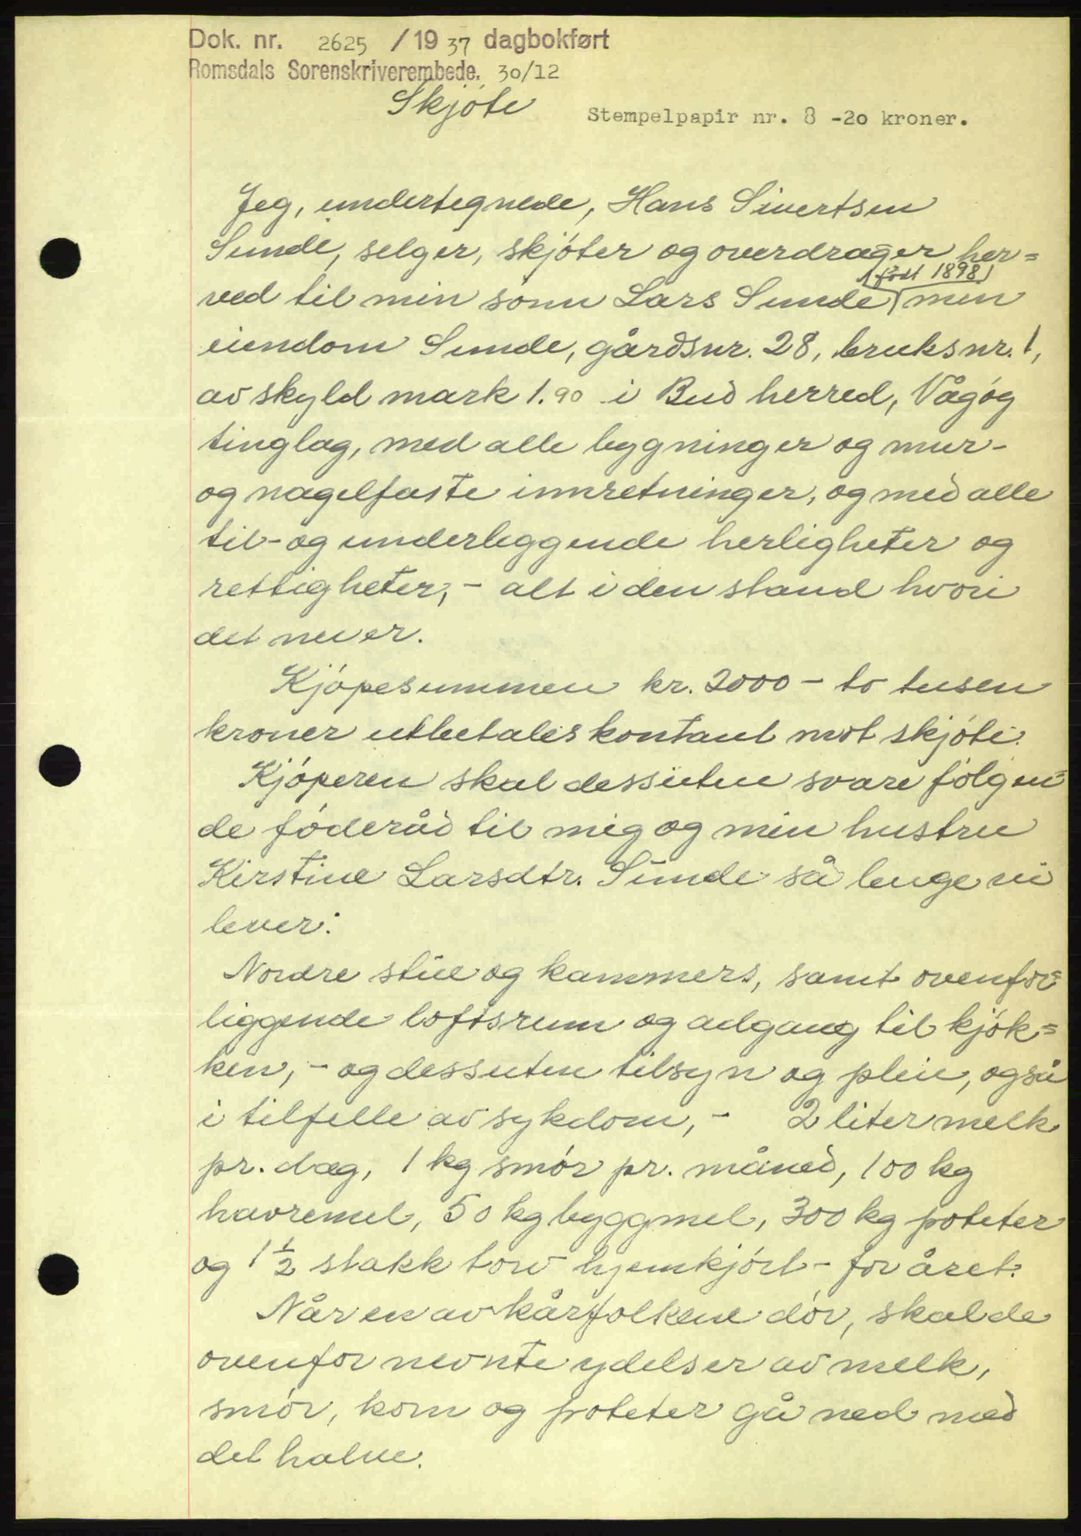 Dok. nr. 2625 / 19 37 dagbokført
Romsdals Sorenskriverembede. 30/12
Skjöte
Stempelpapir nr. 8 -20 kroner.
Jeg, undertegnede, Hans Sivertsen
Sunde, selger, skjöter og overdrager her=
ved til min sönn Lars Sunde, (född 1898) min
eiendom Sunde, gårdsnr. 28, bruksnr. 1,
av skyld mark 1.90 i Bud herred, Vågöy
tinglag, med alle bygninger og mur-
og nagelfaste innretninger, og med alle
til- og underliggende herligheter og
rettigheter, - alt i den stand hvori
det nu er.
Kjöpesummen kr. 2000 - to tusen
kroner utbetales kontant mot skjöte.
Kjöperen skal dessuten svare fölgen=
de föderåd til mig og min hustru
Kirstine Larsdtr. Sunde så lenge vi
lever:
Nordre stue og kammers, samt ovenfor=
liggende loftsrum og adgang til kjök=
ken, - og dessuten tilsyn og pleie, også
i tilfelle av sykdom, - 2 liter melk
pr. dag, 1 kg smör pr. måned, 100 kg
havremel, 50 kg byggmel, 300 kg poteter
og 1 1/2 stakk torv hjemkjört - for året.
Når en av kårfolkene dör, skal de
ovenfor nevnte ydelser av melk,
smör, korn og poteter gå ned med
det halve.